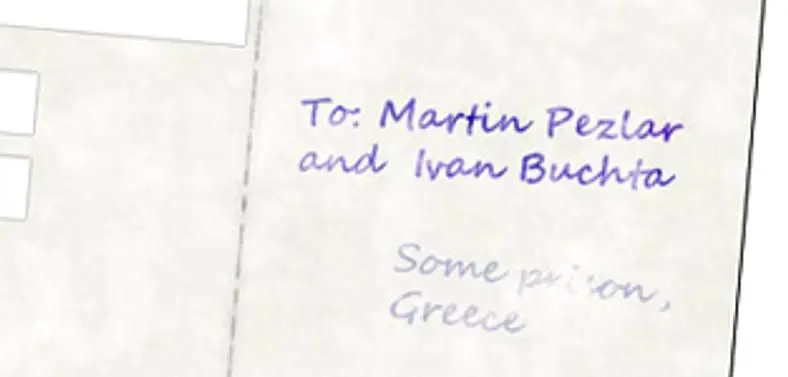 To: Martin Pezlar
and Ivan Buchta
Some prison,
Greece